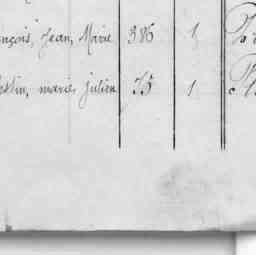 nçois, Jean, Marie 386 1
stin, marie, julien 75 1